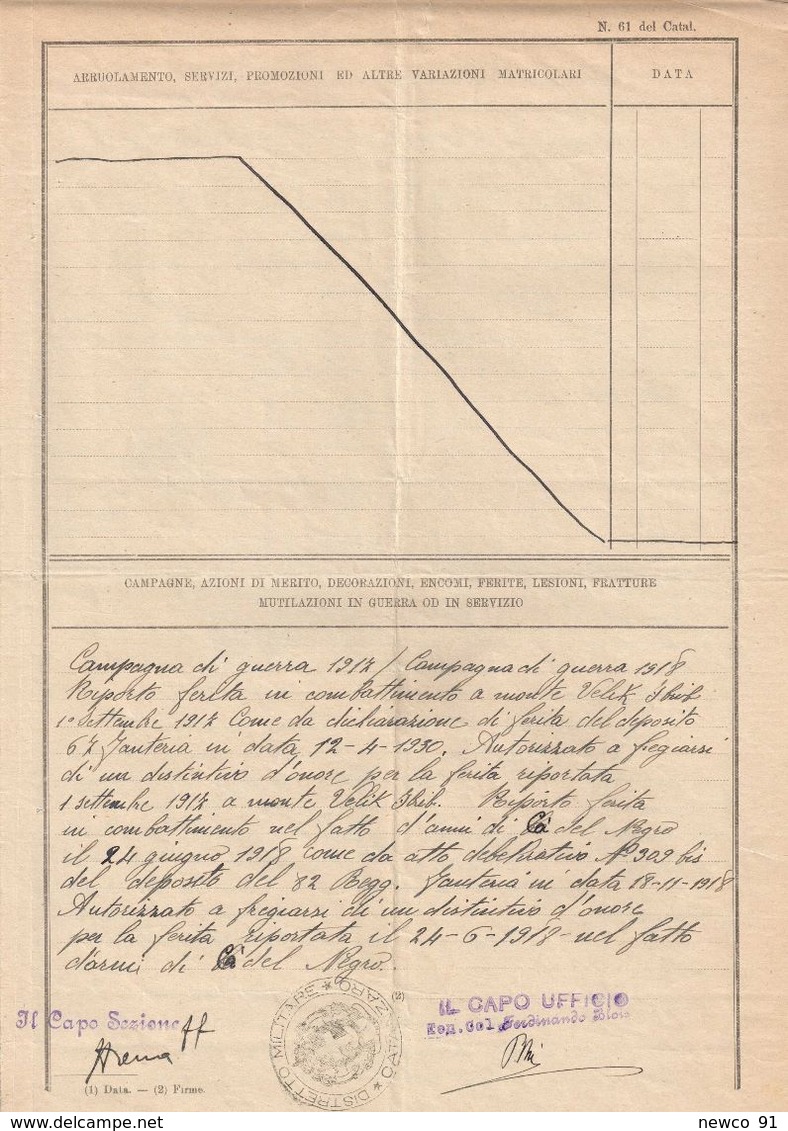 N. 61 del Catal.
ARRUOLAMENTO, SERVIZI, PROMOZIONI ED ALTRE VARIAZIONI MATRICOLARI
DATA
CAMPAGNE, AZIONI DI MERITO, DECORAZIONI, ENCOMI, FERITE, LESIONI, FRATTURE
MUTILAZIONI IN GUERRA OD IN SERVIZIO
Campagna di guerra 1917 / Campagna di guerra 1918
Riporto ferita in combattimento a monte Velik
1° settembre 1917 Come da dichiarazione di ferita del deposito
67 Fanteria in data 12-4-1930. Autorizzato a fregiarsi
di un distintivo d'onore per la ferita riportata
1 settembre 1917 a monte Velik. Riporto ferita
in combattimento nel fatto d'armi di Cà del Negro
il 24 giugno 1918 come da atto deliberativo N° 309 bis
del deposito del 82 Regg. Fanteria in data 18-11-1918
Autorizzato a fregiarsi di un distintivo d'onore
per la ferita riportata il 24-6-1918 nel fatto
d'armi di Cà del Negro.
(2)
Il Capo Sezione
IL CAPO UFFICIO
Ten. Col. Ferdinando Blois
DISTRETTO MILITARE * CATANZARO *
(1) Data. — (2) Firme.
newco 91